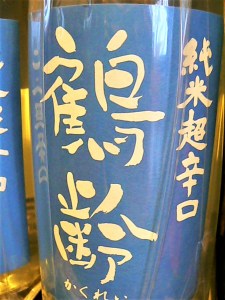 純米超辛口
鶴齢
かくれい
辛口